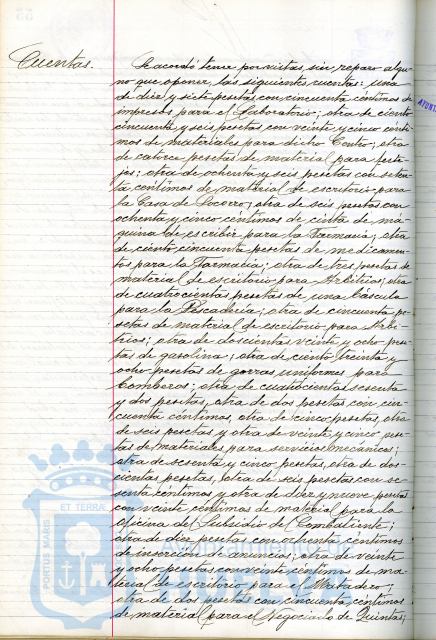 Cuentas.
Se acordó tener por vistas, sin reparo algu-
no que oponer, las siguientes cuentas: una
de diez y siete pesetas con cincuenta céntimos de
impresos para el Laboratorio; otra de ciento
cincuenta y seis pesetas con veinte y cinco cénti-
mos de materiales para dicho Centro; otra
de catorce pesetas de material para feste-
jos; otra de ochenta y seis pesetas con seten-
ta céntimos de material de escritorio para
la Casa de Socorro; otra de seis pesetas con
ochenta y cinco céntimos de cinta de má-
quina de escribir para la Farmacia; otra
de ciento cincuenta pesetas de medicamen-
tos para la Farmacia; otra de tres pesetas de
material de escritorio para Arbitrios; otra
de cuatrocientas pesetas de una báscula
para la Pescadería; otra de cincuenta pe-
setas de material de escritorio para Arbi-
trios; otra de doscientas veinte y ocho pese-
tas de gasolina; otra de ciento treinta y
ocho pesetas de gorras uniformes para
Bomberos; otra de cuatrocientas sesenta
y dos pesetas, otra de dos pesetas con cin-
cuenta céntimos, otra de cinco pesetas, otra
de seis pesetas y otra de veinte y cinco pese-
tas de materiales para servicios mecánicos;
otra de sesenta y cinco pesetas, otra de dos-
cientas pesetas, otra de seis pesetas con se-
senta céntimos y otra de diez y nueve pesetas
con veinte céntimos de material para la
oficina de Subsidio de Combatiente;
otra de diez pesetas con ochenta céntimos
de inserción de anuncios; otra de veinte
y ocho pesetas con veinte céntimos de ma-
terial de escritorio para el Matadero;
otra de dos pesetas con cincuenta céntimos
de material para el Negociado de Quintas;
PORTUS MARIS ET TERRAE
AYUNT